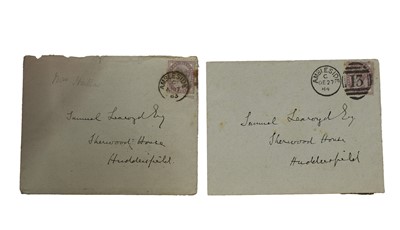 AMBLESIDE
83
Samuel Learoyd Esq
Sherwood House
Huddersfield
AMBLESIDE
C
DE 27
84
13
Samuel Learoyd Esq
Sherwood House
Huddersfield